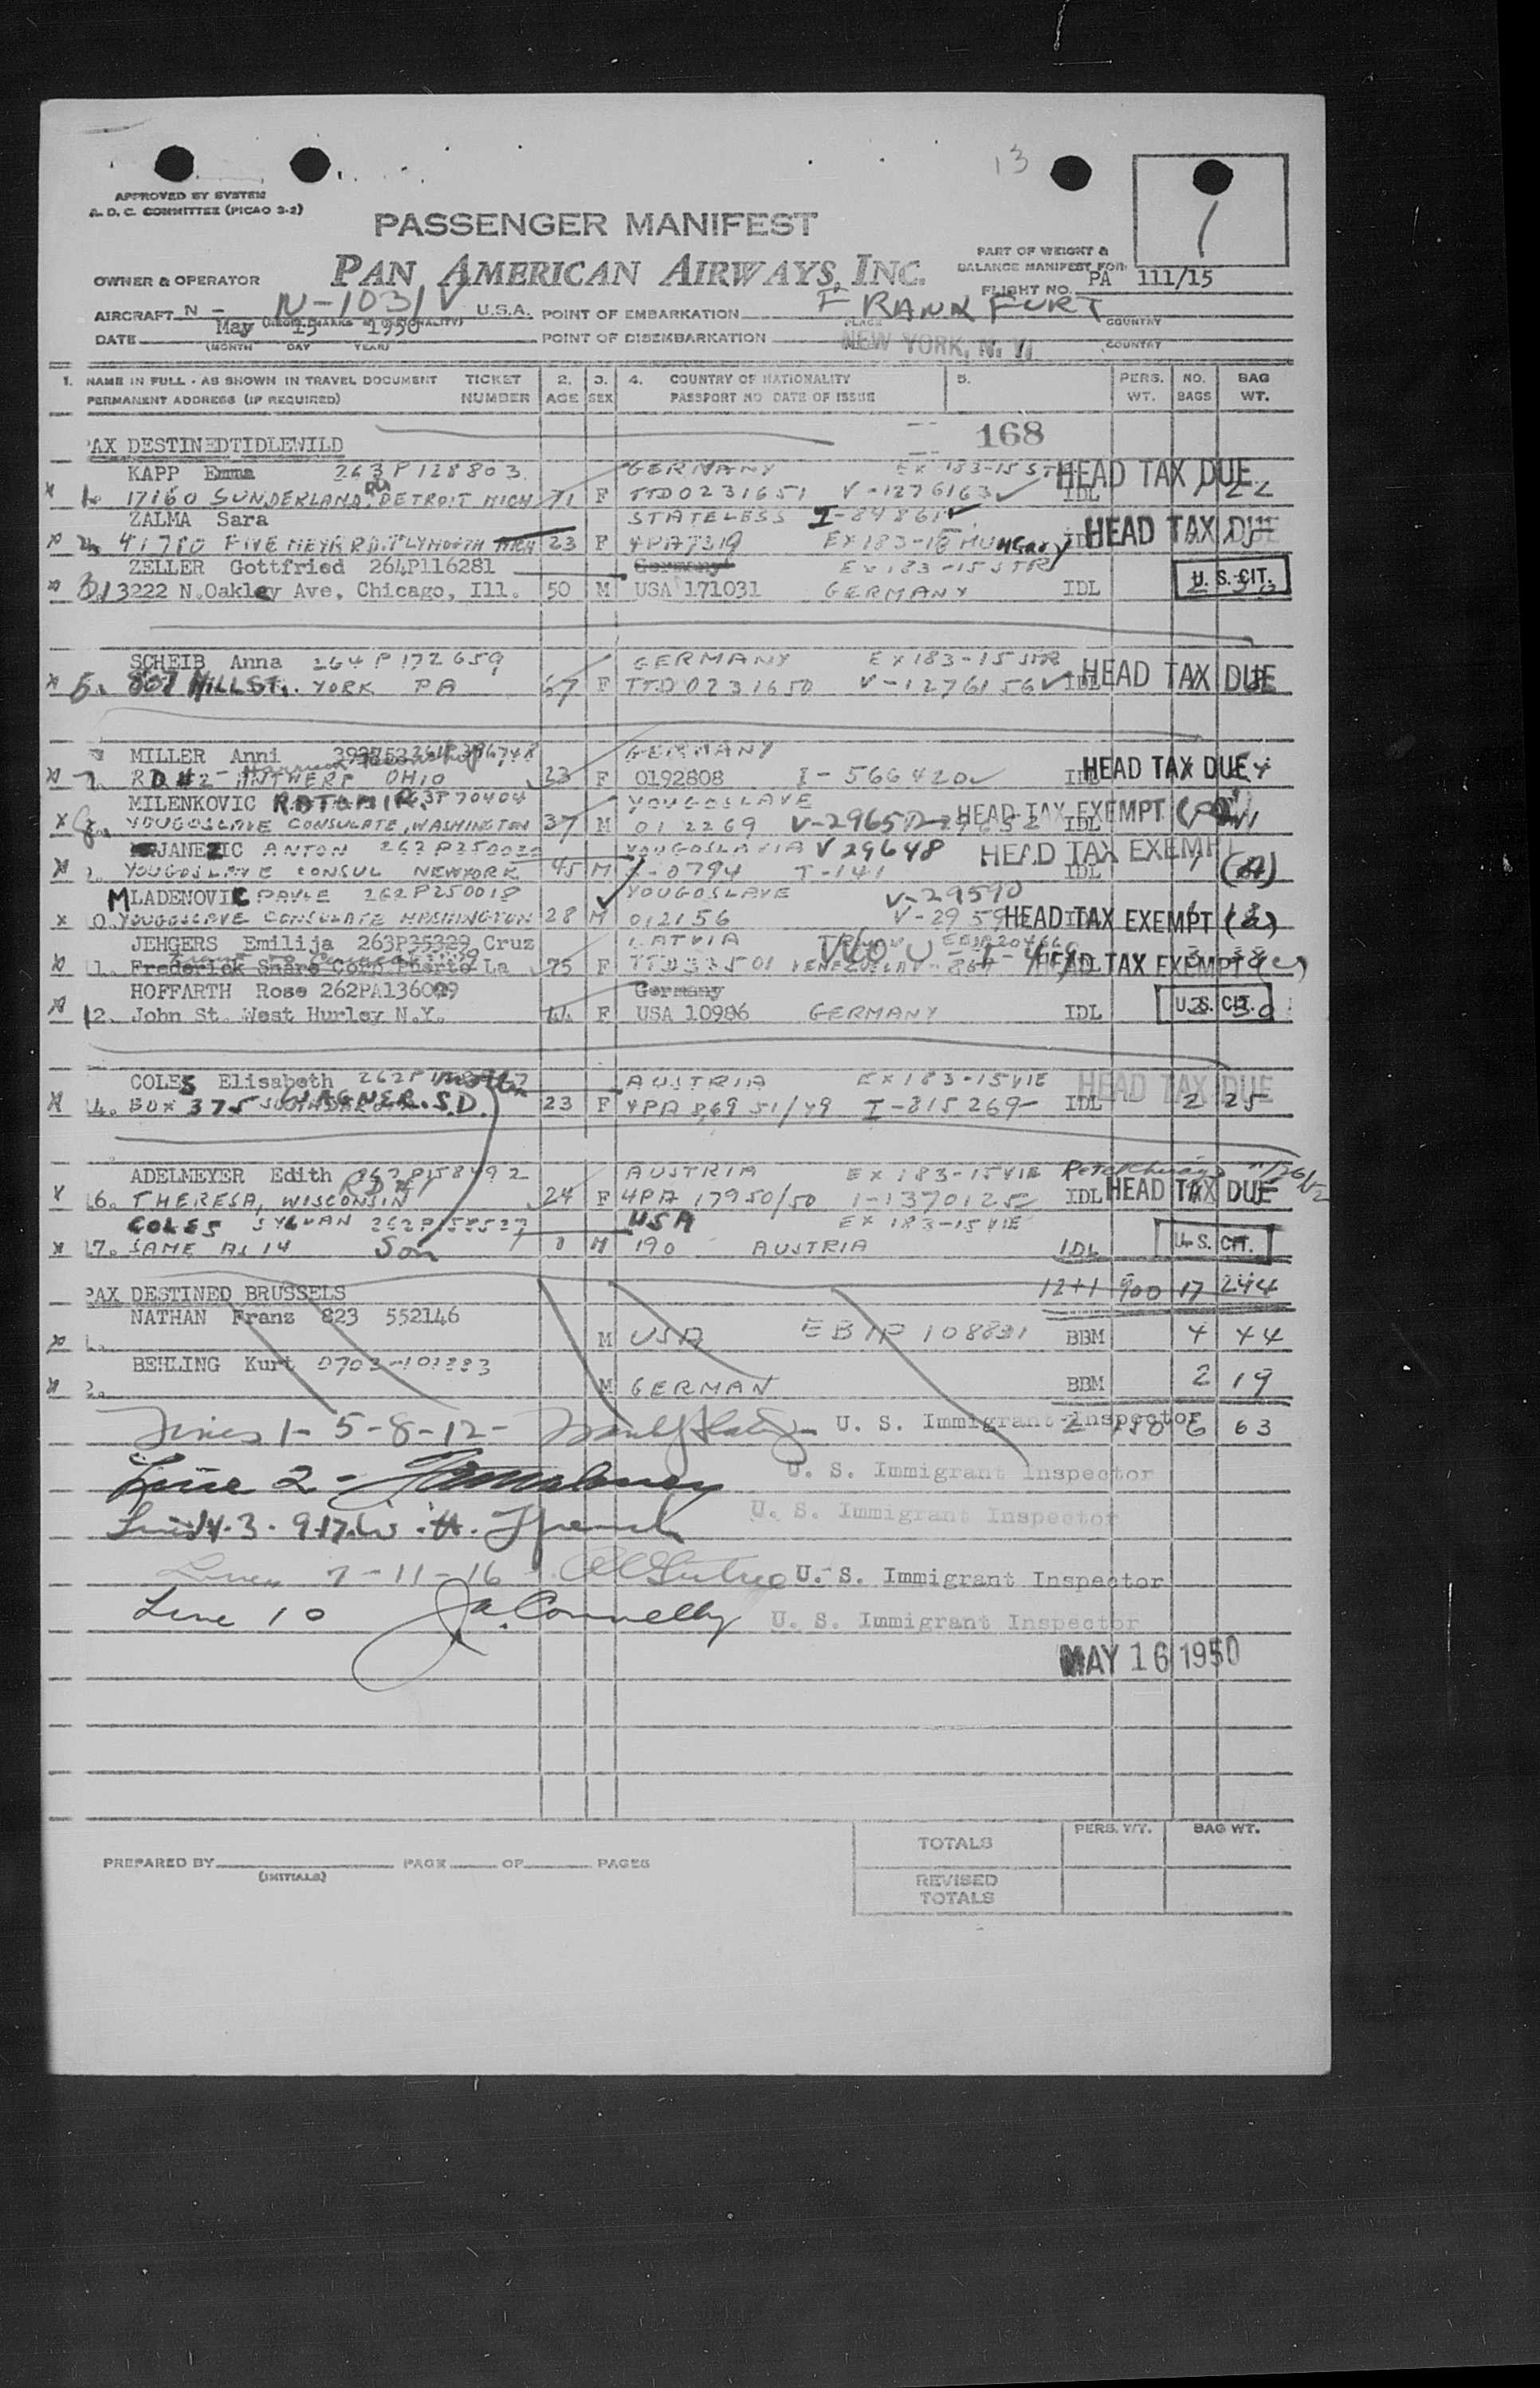 13
APPROVED BY SYSTEM
A. D. C. COMMITTEE (PICAO 3-2)
PASSENGER MANIFEST
1
PART OF WEIGHT &
BALANCE MANIFEST FOR
OWNER & OPERATOR PAN AMERICAN AIRWAYS, INC. FLIGHT NO. PA 111/15
AIRCRAFT N - N-1031V U.S.A. POINT OF EMBARKATION FRANKFURT
PLACE COUNTRY
DATE May 15 1950 POINT OF DISEMBARKATION NEW YORK, N. Y.
(MONTH DAY YEAR) COUNTRY
1. NAME IN FULL - AS SHOWN IN TRAVEL DOCUMENT TICKET 2. 3. 4. COUNTRY OF NATIONALITY 5. PERS. NO. BAG
PERMANENT ADDRESS (IF REQUIRED) NUMBER AGE SEX PASSPORT NO DATE OF ISSUE WT. BAGS WT.
168
PAX DESTINEDTIDLEWILD
KAPP Emma 263P128803 GERMANY EX 183-15 STR HEAD TAX DUE
x 1. 17160 SUNDERLAND RD DETROIT MICH 71 F TTD0231651 V-1276163 IDL 22
ZALMA Sara STATELESS I-84861
2. 41780 FIVE MEYK RD. PLYMOUTH MICH 23 F 4PA7319 EX183-18 HUNGARY IDL HEAD TAX DUE
ZELLER Gottfried 264P116281 Germany EX 183-15 STR
x 3. 3222 N.Oakley Ave, Chicago, Ill. 50 M USA 171031 GERMANY IDL U. S. CIT.
SCHEIB Anna 264P172659 GERMANY EX183-15 STR
x 5. 807 HILL ST. YORK PA 67 F TTD0231650 V-1276156 IDL HEAD TAX DUE
MILLER Anni GERMANY
7. RD #2 - ANTWERP OHIO 33 F 0192808 I-566420 IDL HEAD TAX DUE
MILENKOVIC RATOMIR 263P70404 YOUGOSLAVE
x 8. YOUGOSLAVE CONSULATE, WASHINGTON 37 M 01 2269 IDL HEAD TAX EXEMPT
JANEZIC ANTON YOUGOSLAVIA V 29648 HEAD TAX EXEMPT
x 9. YOUGOSLAVE CONSUL NEWYORK 45 M 0794 T-141 IDL (A)
MLADENOVIC PAVLE 262P250018 YOUGOSLAVE V-29590
x 10. YOUGOSLAVE CONSULATE WASHINGTON 28 M 012156 IDL HEAD TAX EXEMPT (a)
JEHGERS Emilija 263P35329 Cruz LATVIA
11. Frederick Snare Corp Puerto La 75 F TTD33501 HEAD TAX EXEMPT
HOFFARTH Rose 262PA136099 Germany
12. John St. West Hurley N.Y. 44 F USA 10986 GERMANY IDL U.S. CIT.
COLES Elisabeth AUSTRIA EX183-15VIE HEAD TAX DUE
14. BOX 375 WAGNER. S.D. 23 F 4PA 8,69 51/49 I-815269 IDL 2 25
ADELMEYER Edith 262P158492 AUSTRIA EX 183-15VIE
16. THERESA, WISCONSIN RD #1 24 F 4PA 17950/50 I-1370125 IDL HEAD TAX DUE
COLES SYLVAN 262P158527 USA EX 183-15 VIE
x 17. SAME AS 14 Son 0 M 190 AUSTRIA IDL U. S. CIT.
12+1 900 17 244
PAX DESTINED BRUSSELS
NATHAN Franz 823 552146
1. M USA EBIP 108831 BBM 4 44
BEHLING Kurt
2. M GERMAN BBM 2 19
Lines 1-5-8-12- U. S. Immigrant Inspector 2 180 6 63
Line 2- U. S. Immigrant Inspector
Lines 14.3.9.17. W. H. U. S. Immigrant Inspector
Lines 7-11-16 U. S. Immigrant Inspector
Line 10 J.A. Connelly U. S. Immigrant Inspector
MAY 16 1950
PERS. WT. BAG WT.
TOTALS
PREPARED BY PAGE OF PAGES
(INITIALS)
REVISED
TOTALS